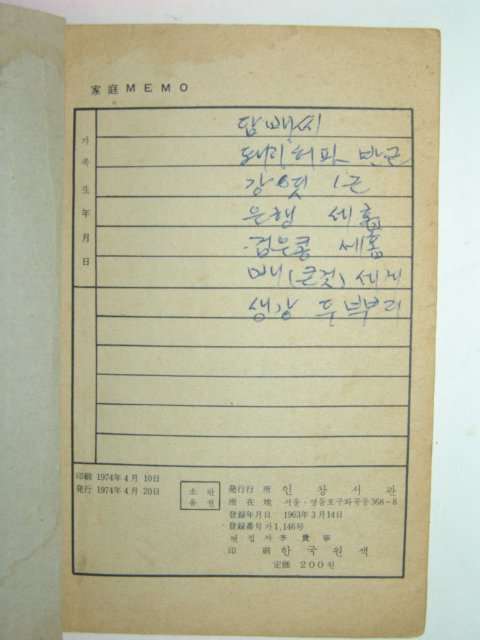 家庭 MEMO
가족生年月日
담배씨
돼지허파 반근
강엿 1근
은행 세홉
검은콩 세홉
배(큰것) 세개
생강 두뿌리
印刷 1974年 4月 10日
発行 1974年 4月 20日
소판
유권
発行行所 인창서관
所在地 서울·영등포구화곡동368-8
登録年月日 1963年3月14日
登録番号가1,146号
편집자 李貴寧
印刷 한국원색
定価 200원